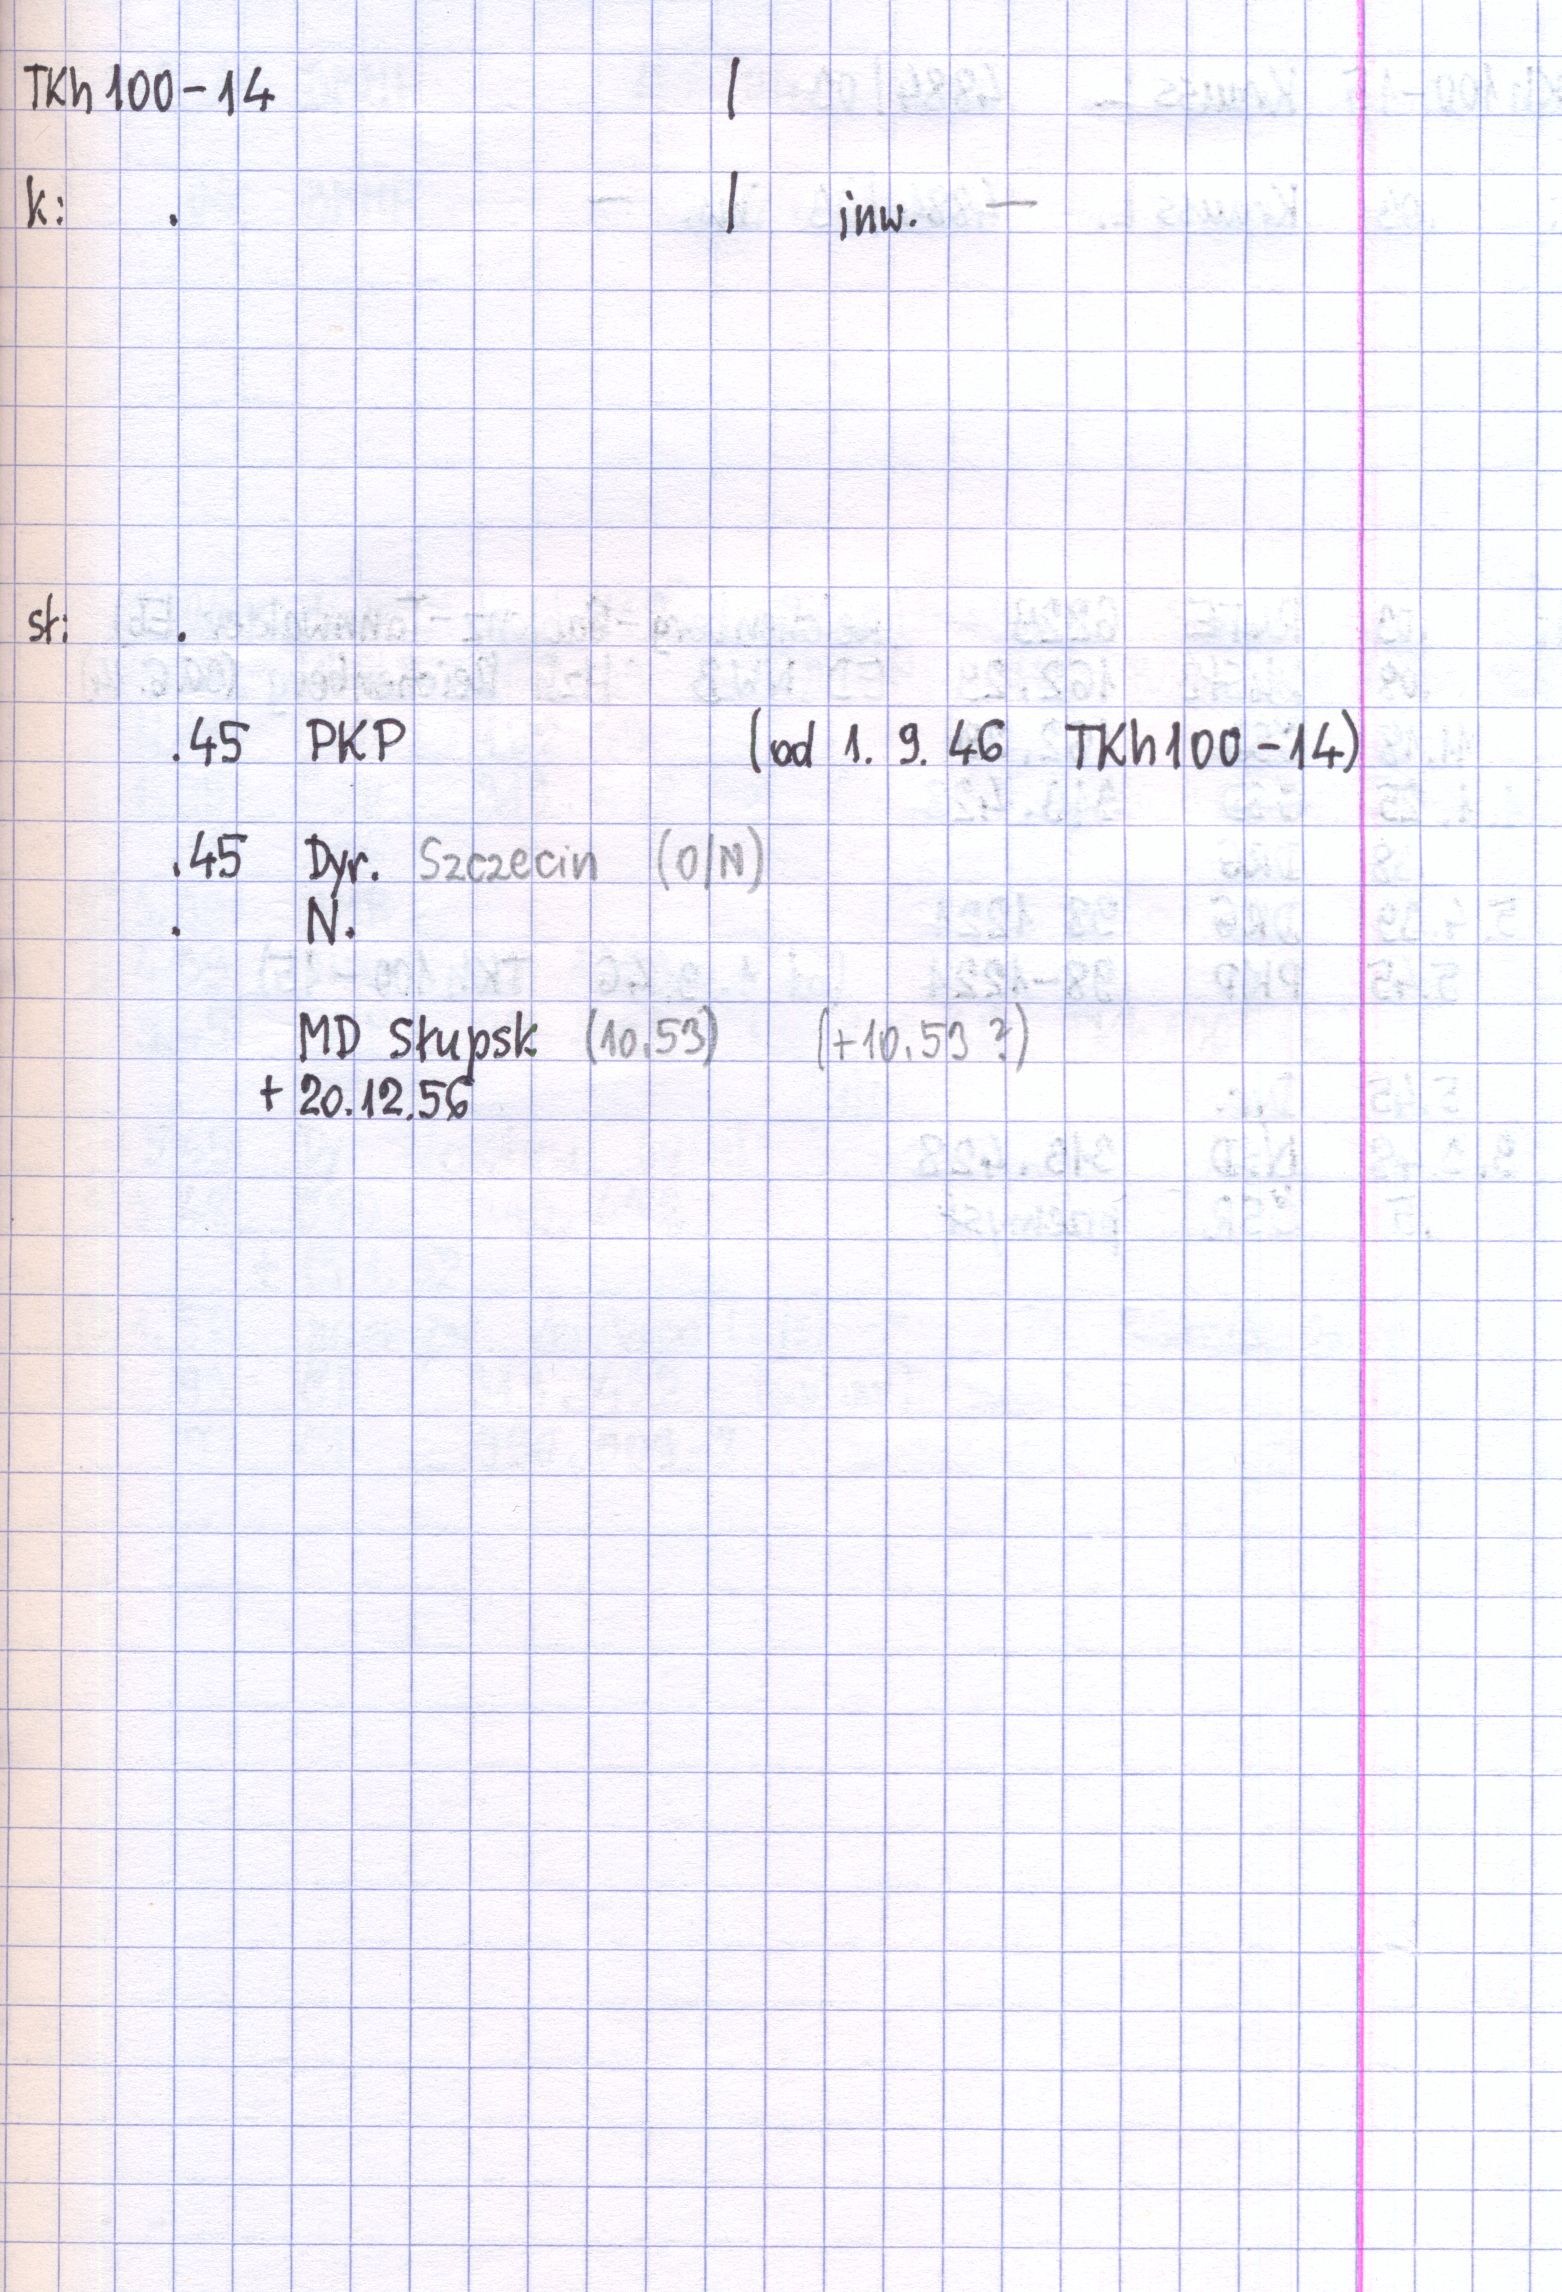 TKh 100-14 /
k: . / inw. —
sł: .
.45 PKP (od 1. 9. 46 TKh 100-14)
.45 Dyr. Szczecin (O/N)
. N.
MD Słupsk (10.53) (+10.53 ?)
+ 20.12.56